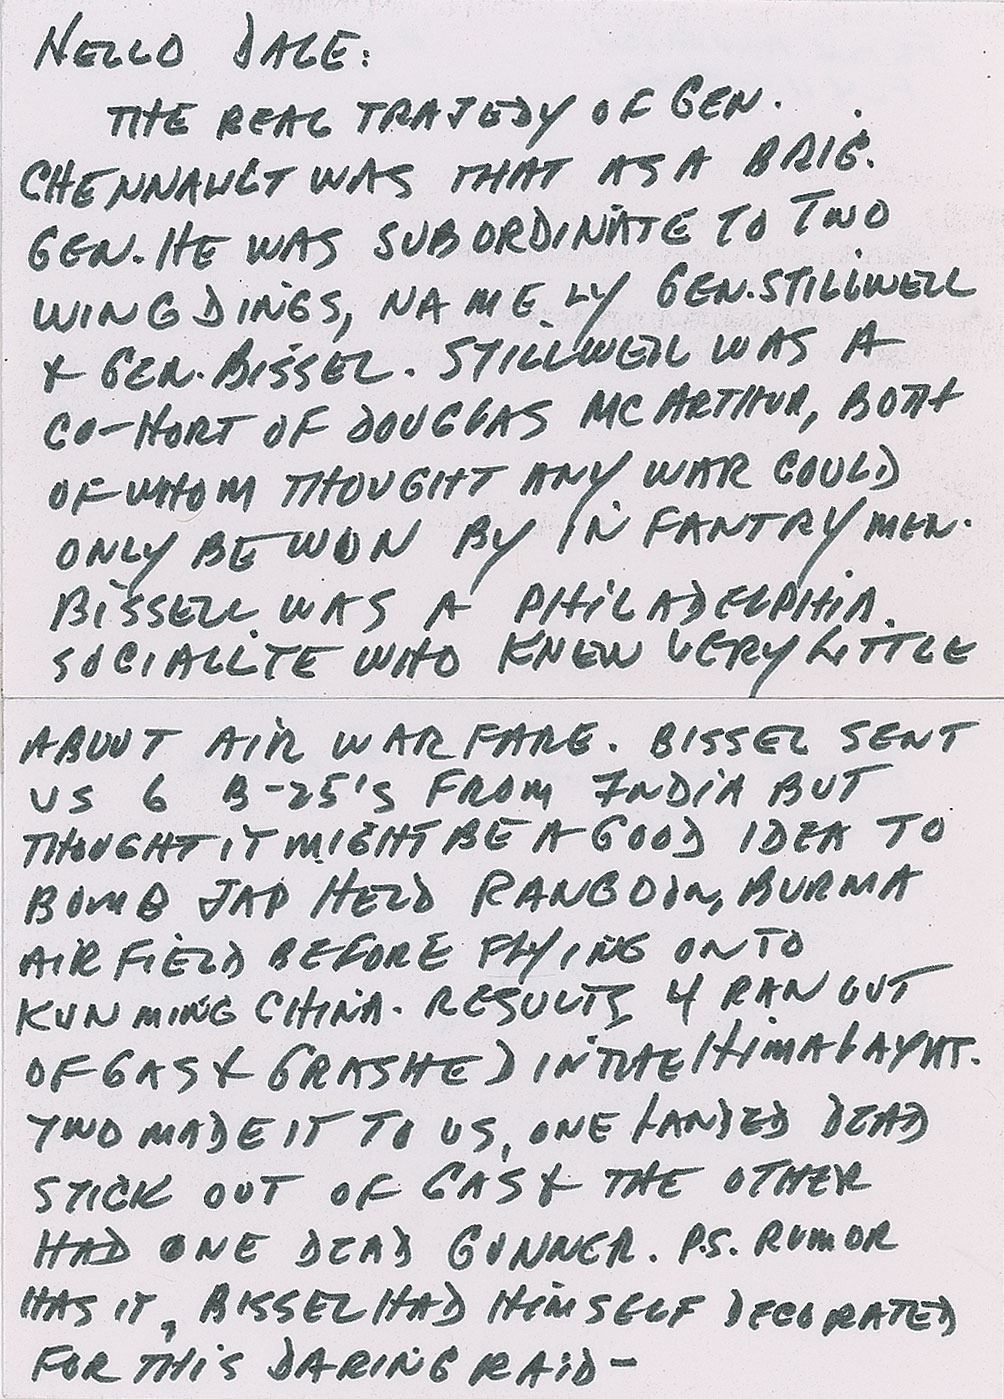 HELLO DALE:
THE REAL TRAJEDY OF GEN.
CHENNAULT WAS THAT AS A BRIG.
GEN. HE WAS SUBORDINATE TO TWO
WING DINGS, NAMELY GEN. STILLWELL
& GEN. BISSEL. STILLWELL WAS A
CO-HORT OF DOUGLAS MC ARTHUR, BOTH
OF WHOM THOUGHT ANY WAR COULD
ONLY BE WON BY INFANTRYMEN.
BISSELL WAS A PHILADELPHIA
SOCIALITE WHO KNEW VERY LITTLE
ABOUT AIR WARFARE. BISSEL SENT
US 6 B-25'S FROM INDIA BUT
THOUGHT IT MIGHT BE A GOOD IDEA TO
BOMB JAP HELD RANGOON, BURMA
AIRFIELD BEFORE FLYING ONTO
KUNMING CHINA. RESULTS 4 RAN OUT
OF GAS & CRASHED IN THE HIMALAYHS.
TWO MADE IT TO US, ONE LANDED DEAD
STICK OUT OF GAS & THE OTHER
HAD ONE DEAD GUNNER. P.S. RUMOR
HAS IT, BISSEL HAD HIMSELF DECORATED
FOR THIS DARING RAID-